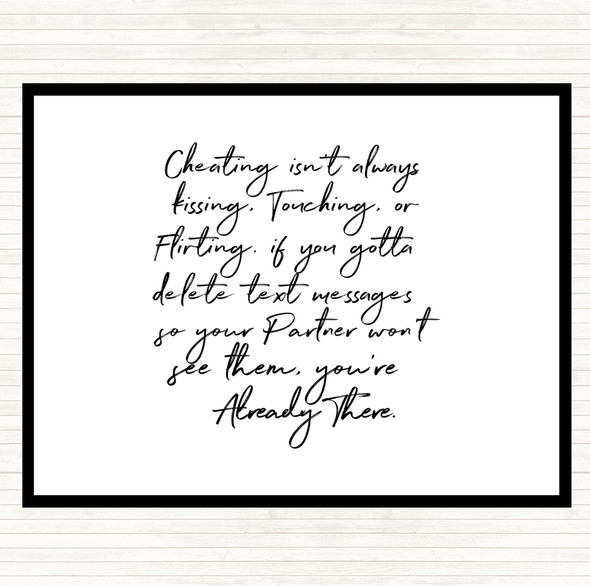 Cheating isn't always
kissing, Touching, or
Flirting. if you gotta
delete text messages
so your Partner won't
see them, you're
Already There.